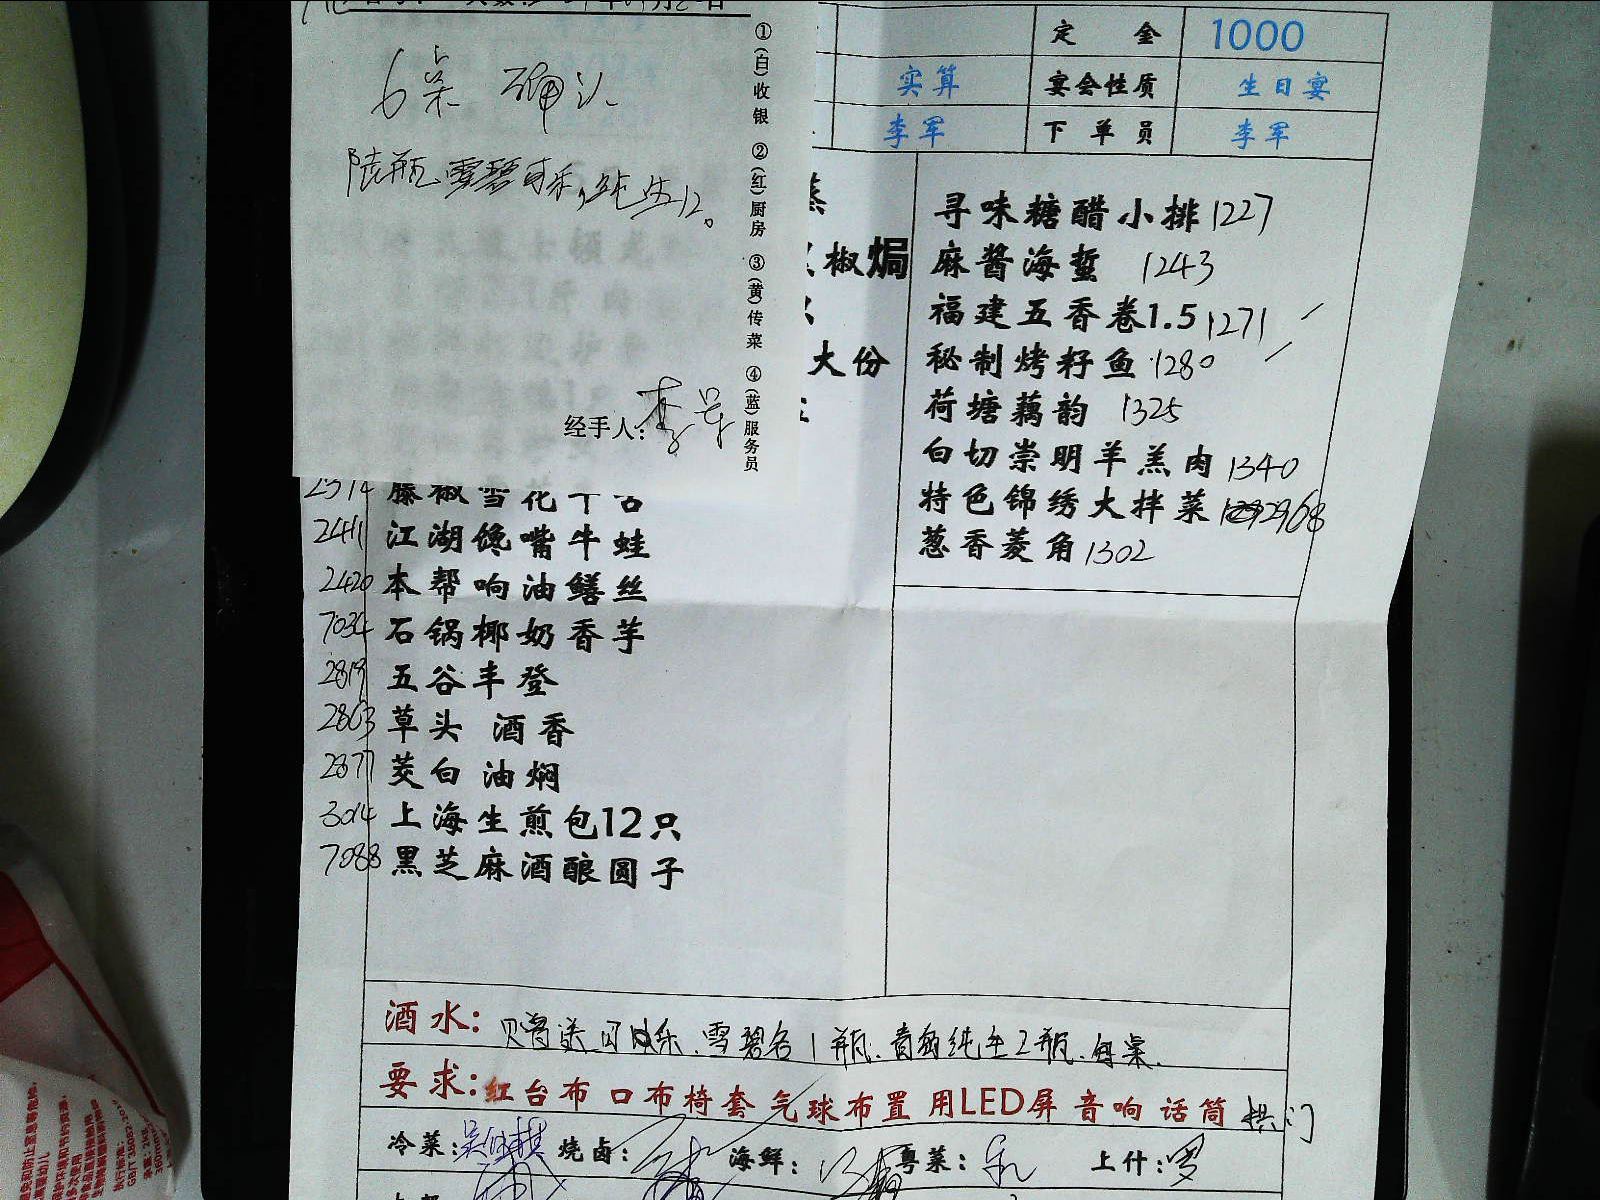 6桌 确认
陆瓶雪碧可乐，纯生12。
经手人：李军
①(白)收银 ②(红)厨房 ③(黄)传菜 ④(蓝)服务员
定金 1000
实算 宴会性质 生日宴
李军 下单员 李军
椒焗
大份
寻味糖醋小排1227
麻酱海蜇 1243
福建五香卷1.5 1271
秘制烤籽鱼 1280
荷塘藕韵 1325
白切崇明羊羔肉 1340
特色锦绣大拌菜 2968
葱香菱角1302
2314 藤椒雪花牛舌
2411 江湖馋嘴牛蛙
2420 本帮响油鳝丝
7034 石锅椰奶香芋
2819 五谷丰登
2863 草头 酒香
2877 茭白 油焖
3014 上海生煎包12只
7088 黑芝麻酒酿圆子
酒水: 赠送可乐、雪碧各1瓶、青岛纯生2瓶、每桌.
要求:红台布 口布椅套气球布置 用LED屏 音响 话筒 拱门
冷菜: 烧卤: 海鲜: 粤菜: 上什:罗